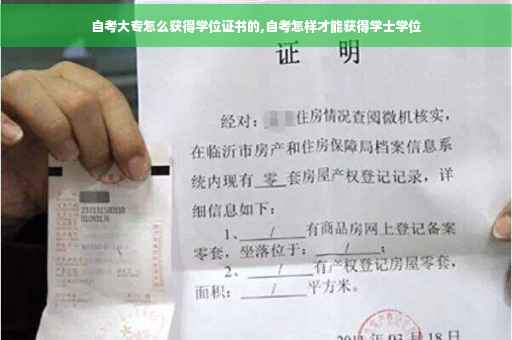 自考大专怎么获得学位证书的,自考怎样才能获得学士学位
证 明
经对：住房情况查阅微机核实，
在临沂市房产和住房保障局档案信息系
统内现有 零 套房屋产权登记记录，详
细信息如下：
1、 / 有商品房网上登记备案
零套，坐落位于： / ；
2、 / 有产权登记房屋零套，
面积： / 平方米。
03月18日